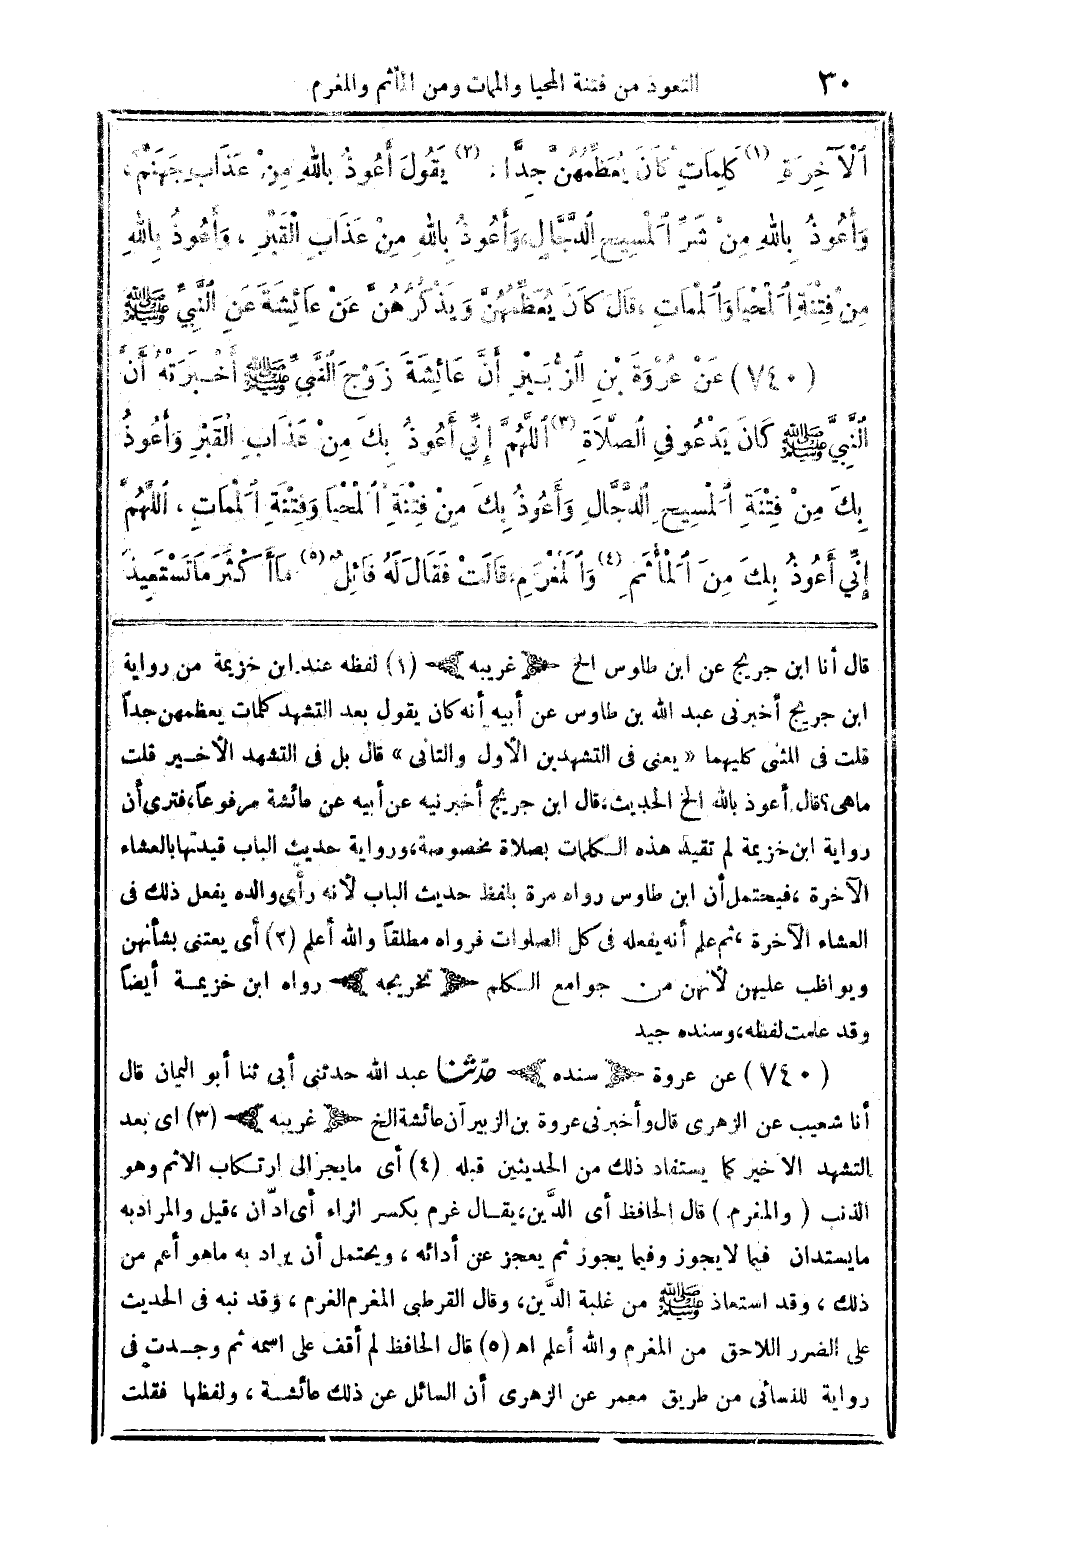 ٣٠ التعوذ من فتنة المحيا والممات ومن المأثم والمغرم
ٱلْآخِرَةِ (١) كَلِمَاتٍ كَانَ يُعَظِّمُهُنَّ جِدًّا ، (٢) يَقُولُ أَعُوذُ بِاللهِ مِنْ عَذَابِ جَهَنَّمَ ،
وَأَعُوذُ بِاللهِ مِنْ شَرِّ ٱلْمَسِيحِ ٱلدَّجَّالِ، وَأَعُوذُ بِاللهِ مِنْ عَذَابِ الْقَبْرِ ، وَأَعُوذُ بِاللهِ
مِنْ فِتْنَةِ ٱلْمَحْيَا وَٱلْمَمَاتِ ، قَالَ كَانَ يُعَظِّمُهُنَّ وَيَذْكُرُهُنَّ عَنْ عَائِشَةَ عَنِ النَّبِيِّ ﷺ
(٧٤٠) عَنْ عُرْوَةَ بْنِ ٱلزُّبَيْرِ أَنَّ عَائِشَةَ زَوْجَ ٱلنَّبِيِّ ﷺ أَخْبَرَتْهُ أَنَّ
ٱلنَّبِيَّ ﷺ كَانَ يَدْعُو فِي الصَّلَاةِ (٣) ٱللَّهُمَّ إِنِّي أَعُوذُ بِكَ مِنْ عَذَابِ الْقَبْرِ وَأَعُوذُ
بِكَ مِنْ فِتْنَةِ ٱلْمَسِيحِ ٱلدَّجَّالِ وَأَعُوذُ بِكَ مِنْ فِتْنَةِ ٱلْمَحْيَا وَفِتْنَةِ ٱلْمَمَاتِ ، ٱللَّهُمَّ
إِنِّي أَعُوذُ بِكَ مِنَ ٱلْمَأْثَمِ (٤) وَٱلْمَغْرَمِ، قَالَتْ فَقَالَ لَهُ قَائِلٌ (٥) مَا أَكْثَرَ مَا تَسْتَعِيذُ
قال أنا ابن جريج عن ابن طاوس الخ ﴿ غريبه ﴾ (١) لفظه عند ابن خزيمة من رواية
ابن جريج أخبرنى عبد الله بن طاوس عن أبيه أنه كان يقول بعد التشهد كلمات يعظمهن جداً
قلت فى المثنى كليهما « يعنى فى التشهدين الأول والثانى » قال بل فى التشهد الأخير قلت
ماهى؟ قال أعوذ بالله الخ الحديث، قال ابن جريج أخبرنيه عن أبيه عن عائشة مرفوعاً، فترى أن
رواية ابن خزيمة لم تقيد هذه الكلمات بصلاة مخصوصة، ورواية حديث الباب قيدتها بالعشاء
الآخرة ، فيحتمل أن ابن طاوس رواه مرة بلفظ حديث الباب لأنه رأى والده يفعل ذلك فى
العشاء الآخرة ، ثم علم أنه يفعله فى كل الصلوات فرواه مطلقاً والله أعلم (٢) أى يعتنى بشأنهن
ويواظب عليهن لأنهن من جوامع الكلم ﴿ تخريجه ﴾ رواه ابن خزيمة أيضاً
وقد علمت لفظه، وسنده جيد
(٧٤٠) عن عروة ﴿ سنده ﴾ حدّثنا عبد الله حدثنى أبى ثنا أبو اليمان قال
أنا شعيب عن الزهرى قال وأخبرنى عروة بن الزبير أن عائشة الخ ﴿ غريبه ﴾ (٣) اى بعد
التشهد الاخير كما يستفاد ذلك من الحديثين قبله (٤) أى مايجر الى ارتكاب الاثم وهو
الذنب ( والمغرم ) قال الحافظ أى الدَّين، يقال غرم بكسر الراء أى ادّان ، قيل والمراد به
مايستدان فيما لايجوز وفيما يجوز ثم يعجز عن أدائه ، ويحتمل أن يراد به ماهو أعم من
ذلك ، وقد استعاذ ﷺ من غلبة الدَّين، وقال القرطبى المغرم الغرم ، وقد نبه فى الحديث
على الضرر اللاحق من المغرم والله أعلم اه (٥) قال الحافظ لم أقف على اسمه ثم وجدت فى
رواية للنسائى من طريق معمر عن الزهرى أن السائل عن ذلك عائشة ، ولفظها فقلت